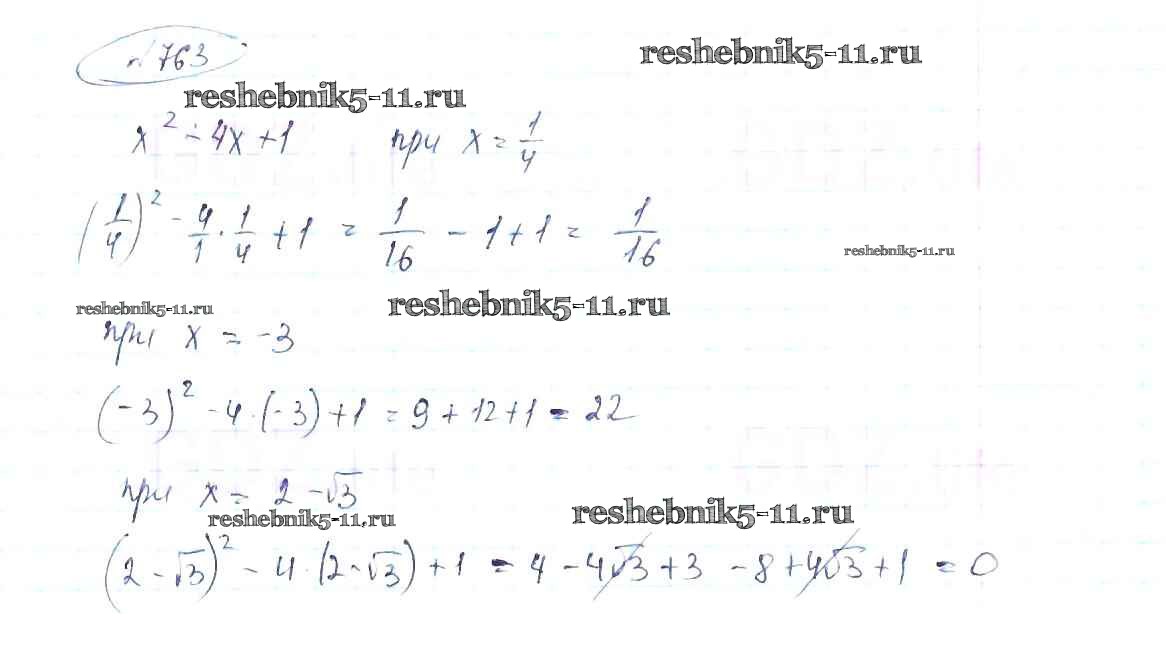 № 763
reshebnik5-11.ru
reshebnik5-11.ru
x² - 4x + 1 при x = 1/4
(1/4)² - 4/1 · 1/4 + 1 = 1/16 - 1 + 1 = 1/16
reshebnik5-11.ru
reshebnik5-11.ru
reshebnik5-11.ru
при x = -3
(-3)² - 4 · (-3) + 1 = 9 + 12 + 1 = 22
при x = 2 - √3
reshebnik5-11.ru
reshebnik5-11.ru
(2 - √3)² - 4 · (2 - √3) + 1 = 4 - 4√3 + 3 - 8 + 4√3 + 1 = 0